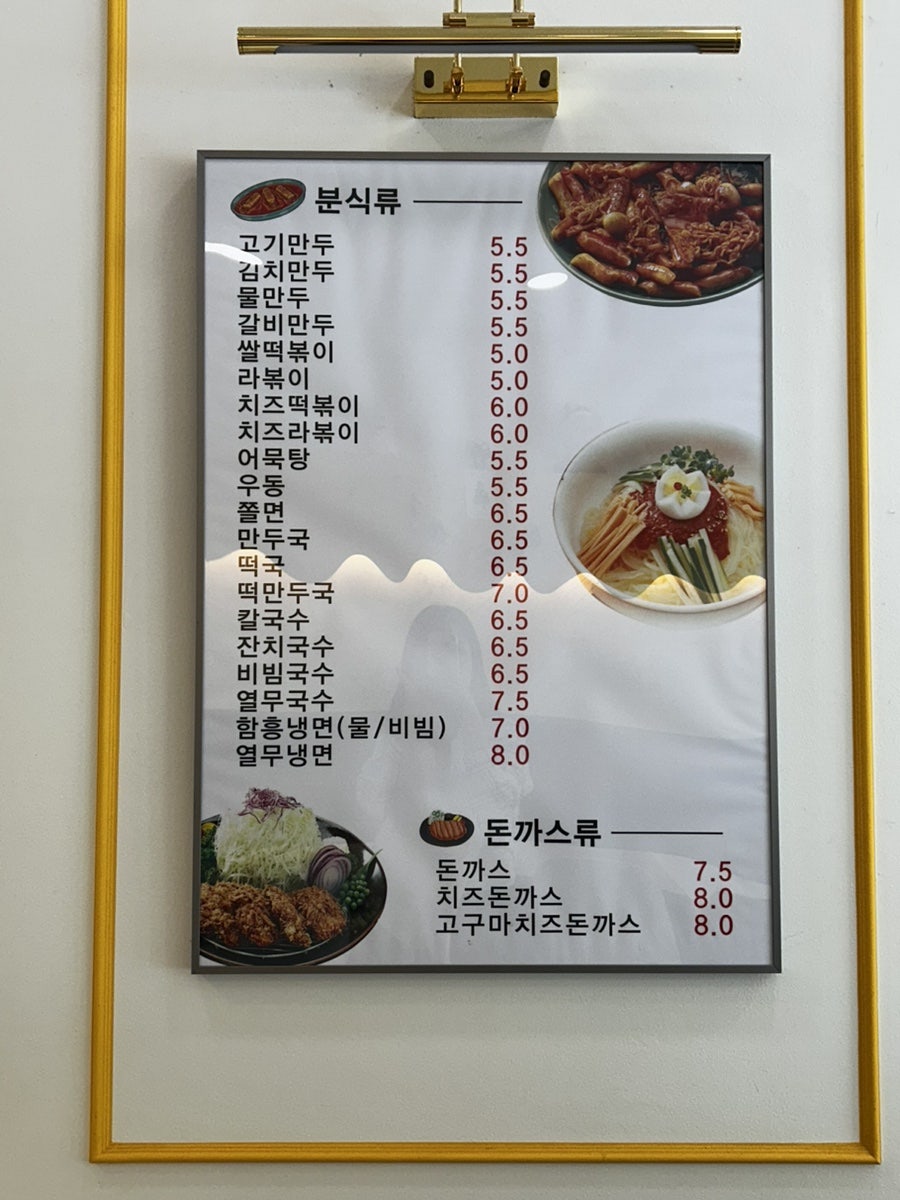 분식류
고기만두 5.5
김치만두 5.5
물만두 5.5
갈비만두 5.5
쌀떡볶이 5.0
라볶이 5.0
치즈떡볶이 6.0
치즈라볶이 6.0
어묵탕 5.5
우동 5.5
쫄면 6.5
만두국 6.5
떡국 6.5
떡만두국 7.0
칼국수 6.5
잔치국수 6.5
비빔국수 6.5
열무국수 7.5
함흥냉면(물/비빔) 7.0
열무냉면 8.0
돈까스류
돈까스 7.5
치즈돈까스 8.0
고구마치즈돈까스 8.0